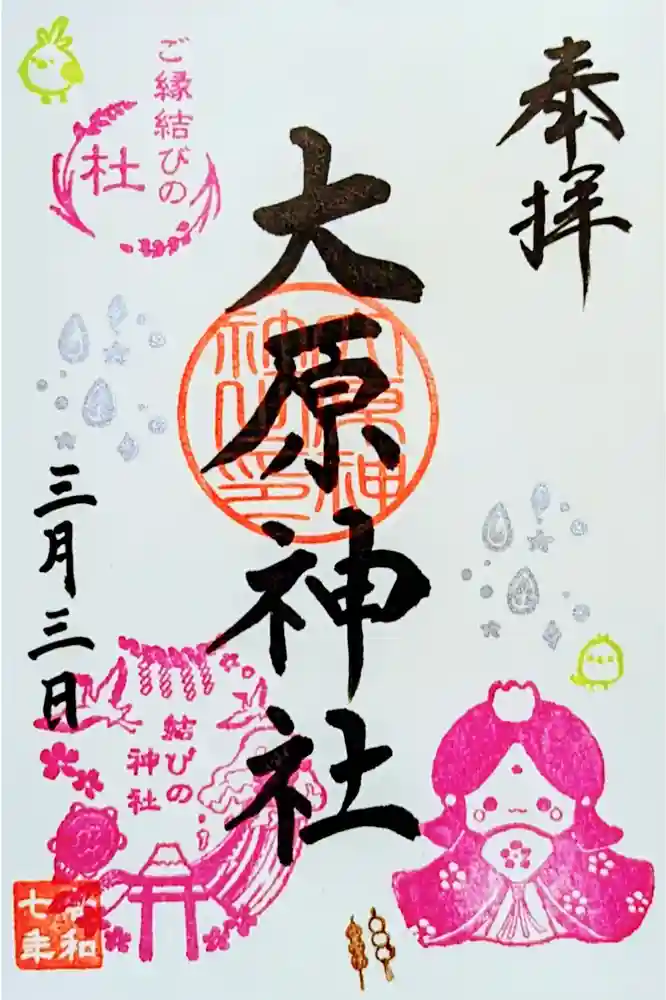 奉拝
大原神社
大原神社之印
ご縁結びの
杜
三月三日
結びの
神社
令和
七年